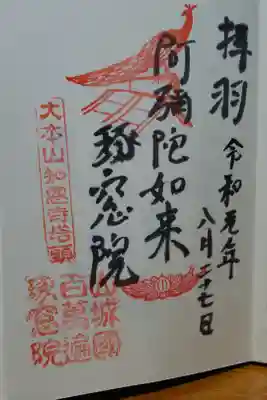 拝羽 令和元年八月二十七日
阿彌陀如来
琢窓院
大本山知恩寺塔頭
山城國
百萬遍
琢窓院